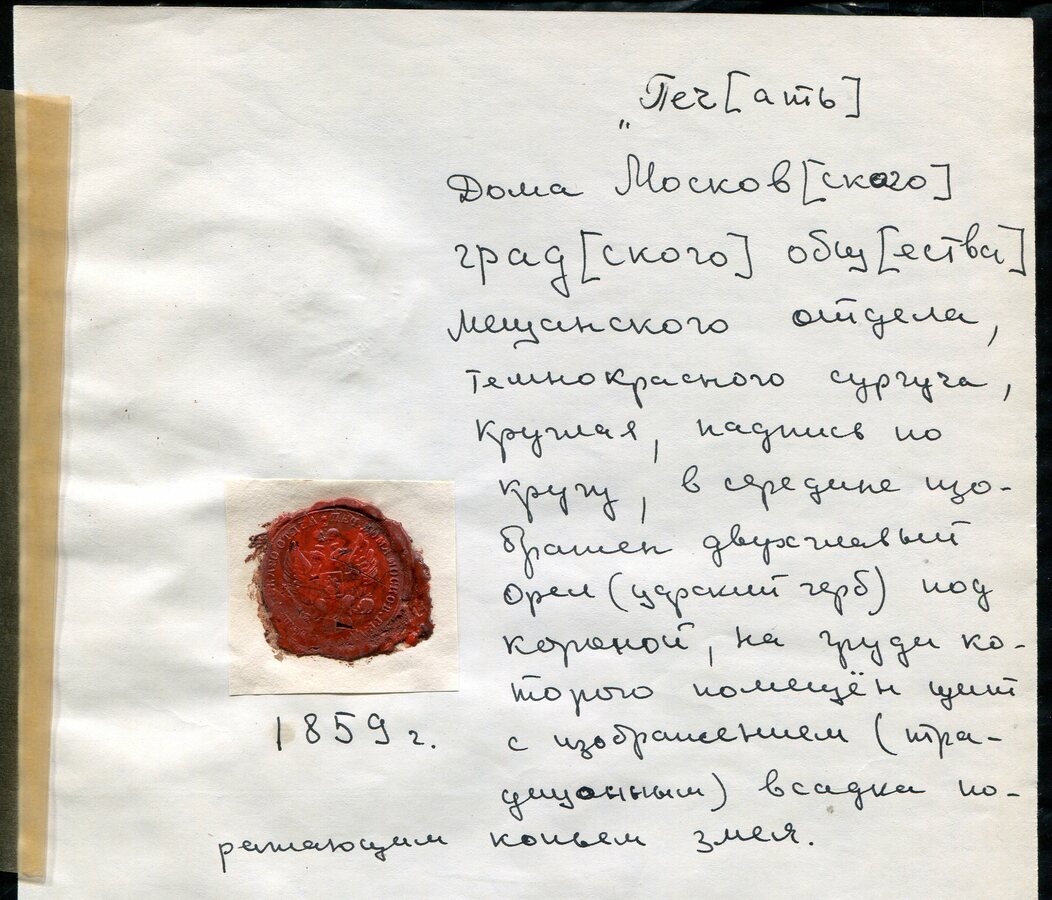 „Печ[ать]
Дома Москов[ского]
град[ского] общ[ества]
мещанского отдела,
темнокрасного сургуча,
круглая, надпись по
кругу, в середине изо-
бражен двухглавый
орел (царский герб) под
короной, на груди ко-
торого помещён щит
с изображением (тра-
диционным) всадка по-
ражающим копьем змея.
1859 г.